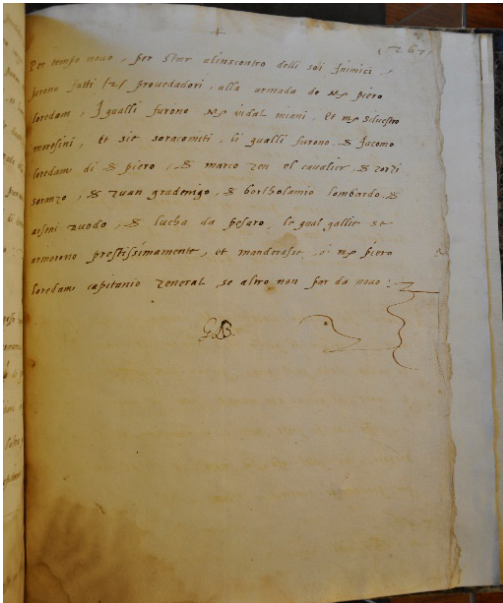 (267)
Per tempo novo, per star alinscontro delli soi Inimici,
furono fatti [2] provedadori, alla armada de mṣ piero
loredam, I qualli furono mṣ vidal miani, Et mṣ silvestro
morosini, Et sie soracomiti, li qualli furono, Ṣ Jacomo
loredam di Ṣ piero, Ṣ marco zen el cavalier, Ṣ zorzi
soranzo, Ṣ zuan gradenigo, Ṣ bortholamio lombardo, Ṣ
arseni zuodo, Ṣ lucha da pesaro, le qual gallie se
armorono prestissimamente, et manderose, a mṣ piero
loredam capitanio zeneral, se altro non par da novo: